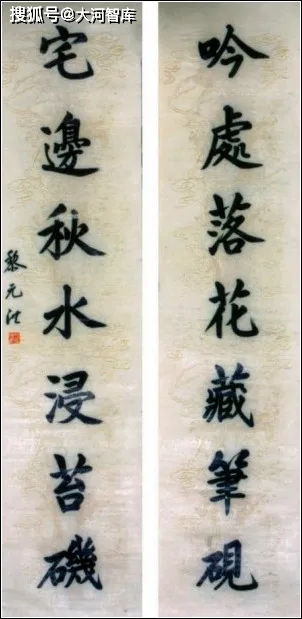 搜狐号@大河智库
吟處落花藏筆硯
宅邊秋水浸苔磯
黎元洪